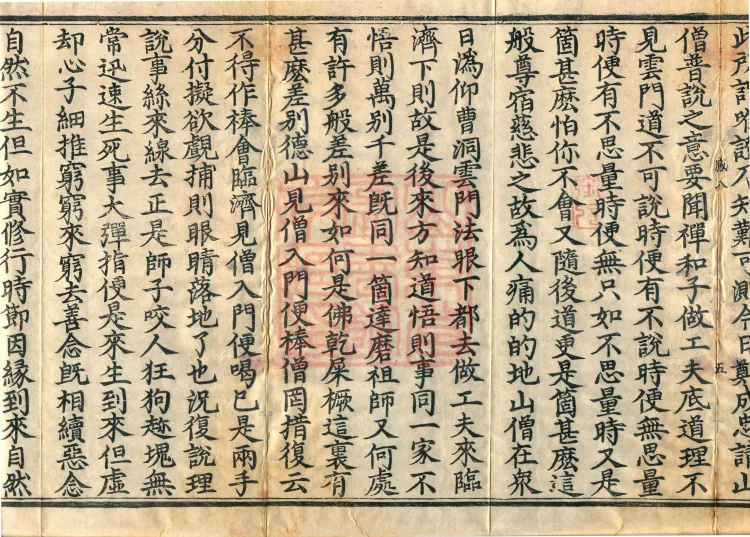 說不知難可測今日鄭成忠請山
八 五
僧普說之意要聞禪和子做工夫底道理不
見雲門道不可說時便有不說時便無思量
時便有不思量時便無只如不思量時又是
箇甚麽怕你不會又隨後道更是箇甚麽這
般尊宿慈悲之故爲人痛的的地山僧在衆
日溈仰曹洞雲門法眼下都去做工夫來臨
濟下則故是後來方知道悟則事同一家不
悟則萬別千差旣同一箇達磨祖師又何處
有許多般差別來如何是佛乾屎橛這裏有
甚麽差別德山見僧入門便棒僧罔措復云
不得作棒會臨濟見僧入門便喝已是兩手
分付擬欲覰捕則眼睛落地了也況復說理
說事絲來線去正是師子咬人狂狗趂塊無
常迅速生死事大彈指便是來生到來但虛
却心子細推窮窮來窮去善念旣相續惡念
自然不生但如實修行時節因緣到來自然